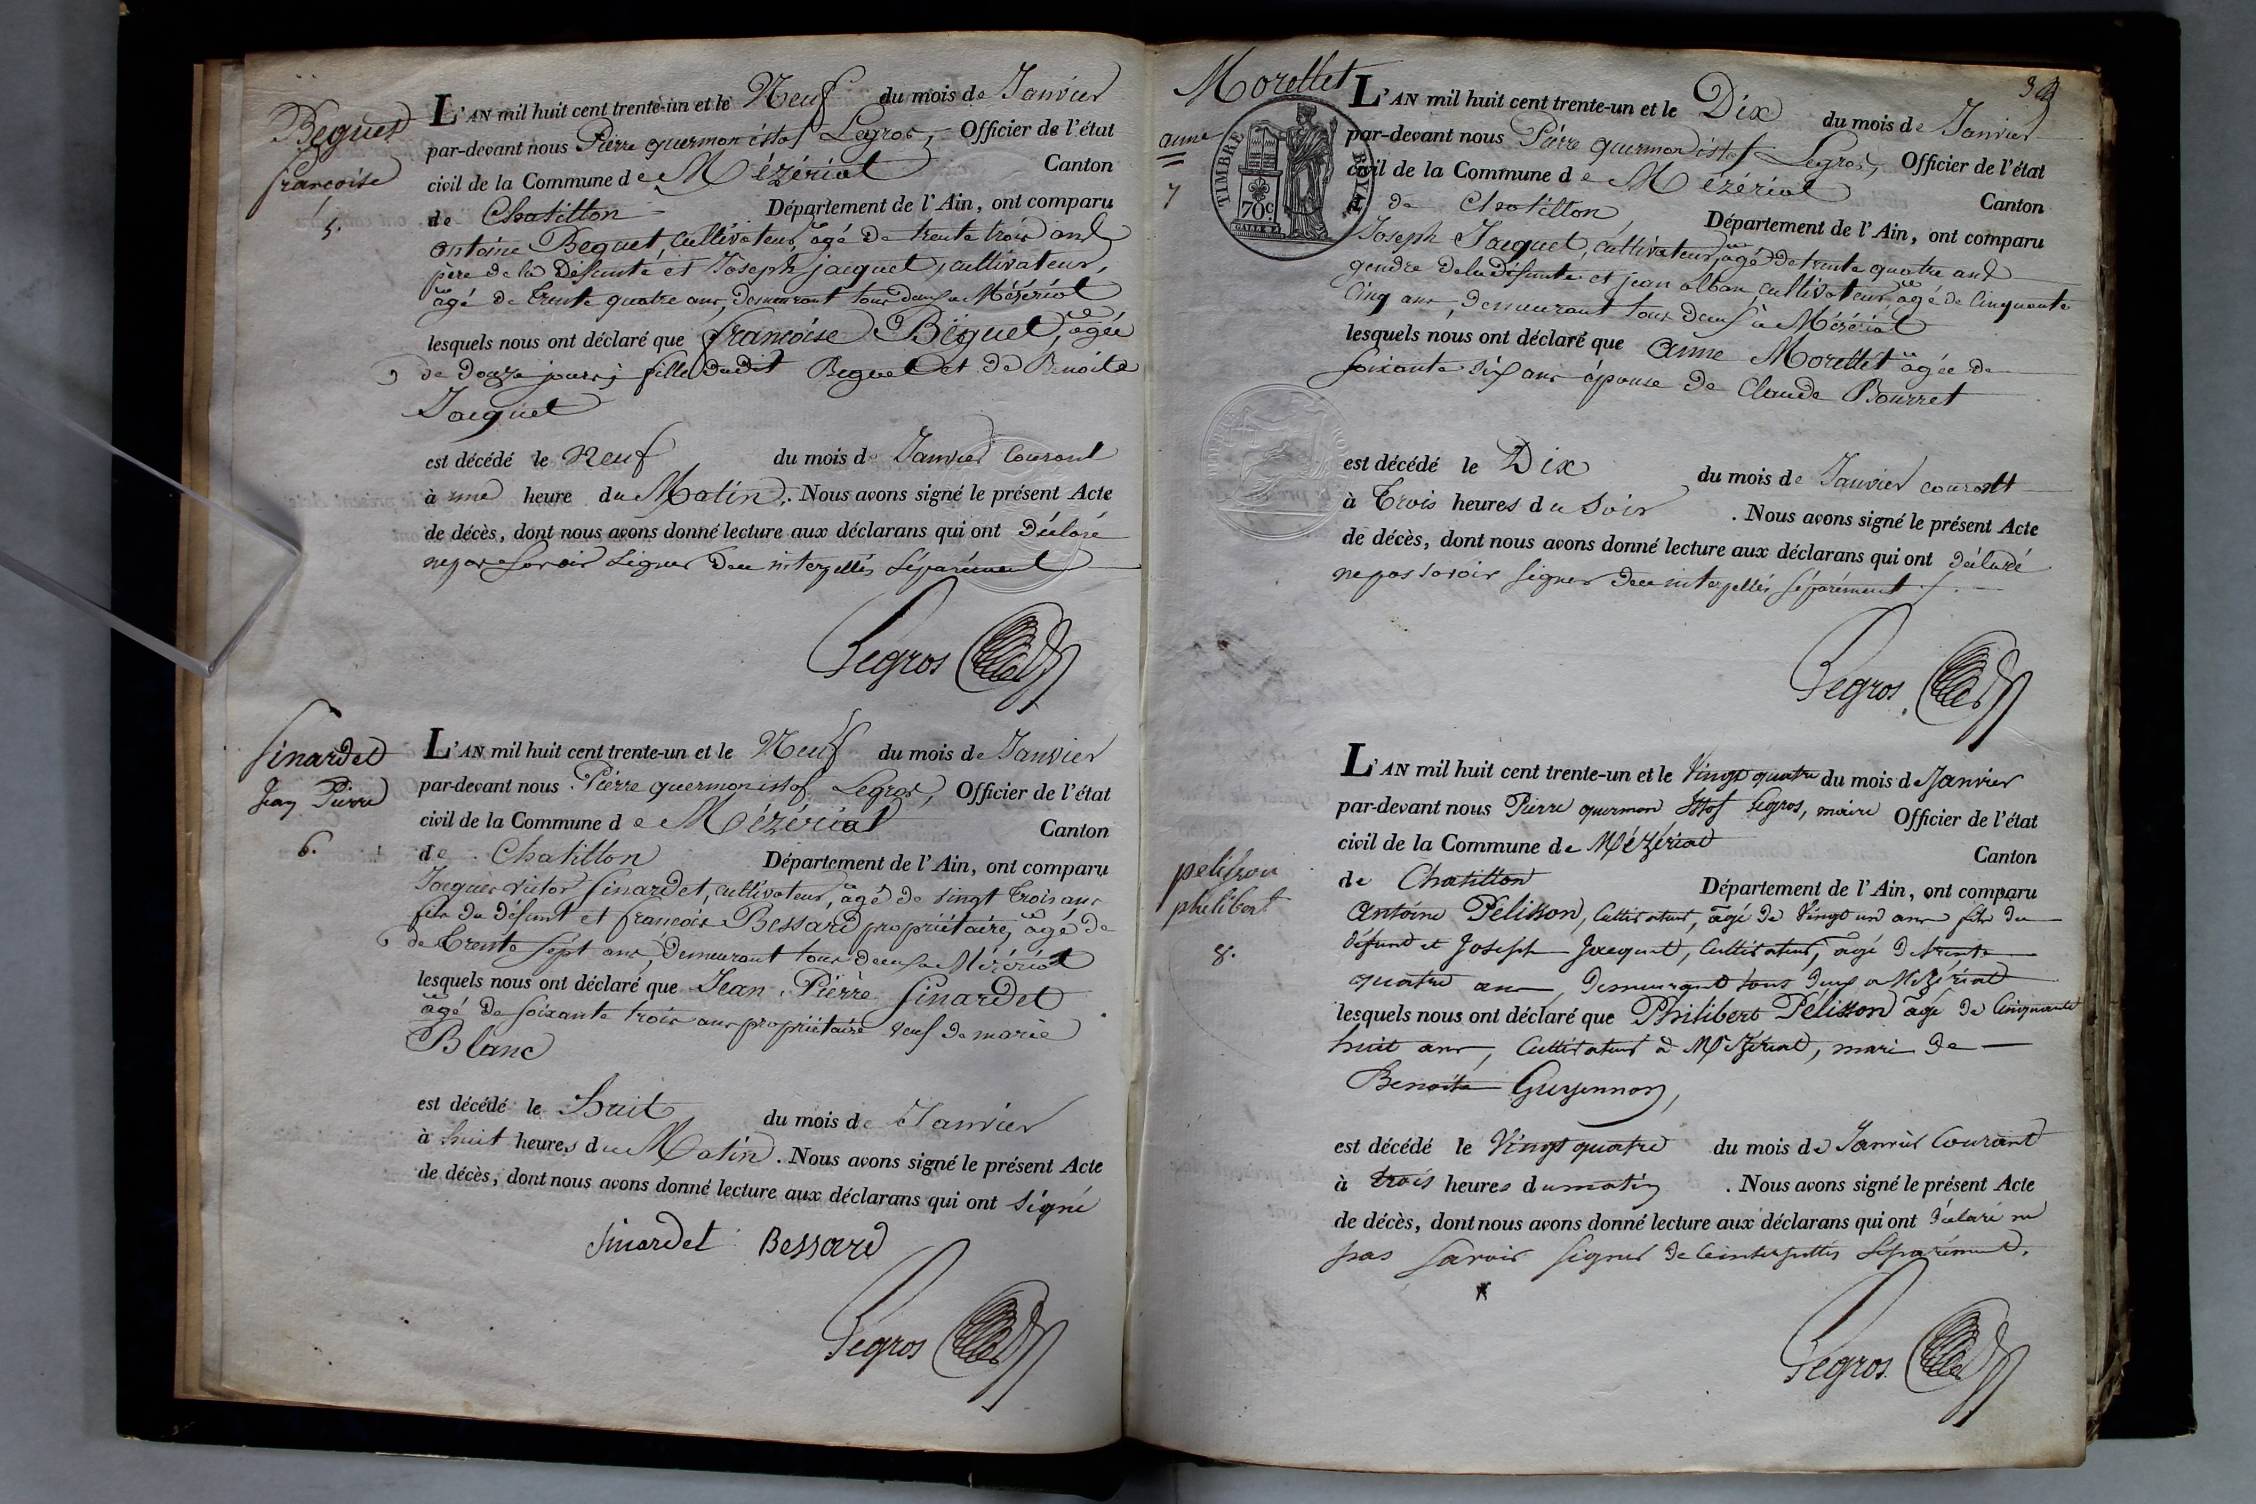 Beguet
françoise
5.
L'AN mil huit cent trente-un et le Neuf du mois de Janvier
par-devant nous Pierre quermon issof Legros, Officier de l'état
civil de la Commune de Mézériat Canton
de Chatillon Département de l'Ain, ont comparu
antoine Beguet, cultivateur, agé de trente trois ans
père de la défunte et Joseph jacquet, cultivateur,
agé de trente quatre ans, demeurant tous deux a Mézériat
lesquels nous ont déclaré que françoise Béguet, agée
de douze jours, fille dudit Beguet et de Benoite
Jacquet
est décédé le neuf du mois de Janvier courant
à une heure du Matin. Nous avons signé le présent Acte
de décès, dont nous avons donné lecture aux déclarans qui ont déclaré
ne pas savoir signer de ce interpellés séparément
Legros
Sinardet
Jean Pierre
6.
L'AN mil huit cent trente-un et le Neuf du mois de Janvier
par-devant nous Pierre quermon issof Legros, Officier de l'état
civil de la Commune de Mézériat Canton
de Chatillon Département de l'Ain, ont comparu
Jacques victor Sinardet, cultivateur, agé de vingt trois ans
fils du défunt et françois Bessard propriétaire, agé de
de trente sept ans, demeurant tous deux a Mézériat
lesquels nous ont déclaré que Jean Pierre Sinardet
agé de soixante trois ans propriétaire veuf de marie
Blanc
est décédé le huit du mois de Janvier
à huit heures du Matin. Nous avons signé le présent Acte
de décès, dont nous avons donné lecture aux déclarans qui ont signé
Sinardet Bessard
Legros
Morellet
anne
7
TIMBRE ROYAL
70c.
L'AN mil huit cent trente-un et le Dix du mois de Janvier
par-devant nous Pierre quermon issof Legros, Officier de l'état
civil de la Commune de Mézériat Canton
de Chatillon Département de l'Ain, ont comparu
Joseph Jacquet, cultivateur, agé de trente quatre ans
gendre de la défunte et jean alban, cultivateur, agé de cinquante
cinq ans, demeurant tous deux a Mézériat
lesquels nous ont déclaré que anne Morellet agée de
soixante six ans épouse de Claude Bourret
est décédé le Dix du mois de Janvier courant
à trois heures du soir. Nous avons signé le présent Acte
de décès, dont nous avons donné lecture aux déclarans qui ont déclaré
ne pas savoir signer de ce interpellés séparément
Legros
pelisson
philibert
8.
L'AN mil huit cent trente-un et le Vingt quatre du mois de Janvier
par-devant nous Pierre quermon issof Legros, maire Officier de l'état
civil de la Commune de Mézériat Canton
de Chatillon Département de l'Ain, ont comparu
Antoine Pelisson, cultivateur, agé de vingt un ans fils du
défunt et Joseph Jacquet, cultivateur, agé de trente
quatre ans, demeurant tous deux a Mézériat
lesquels nous ont déclaré que Philibert Pelisson agé de cinquante
huit ans, cultivateur a Mézériat, mari de
Benoite Guyennon,
est décédé le Vingt quatre du mois de Janvier courant
à trois heures du matin. Nous avons signé le présent Acte
de décès, dont nous avons donné lecture aux déclarans qui ont déclaré ne
pas savoir signer de ce interpellés séparément.
Legros